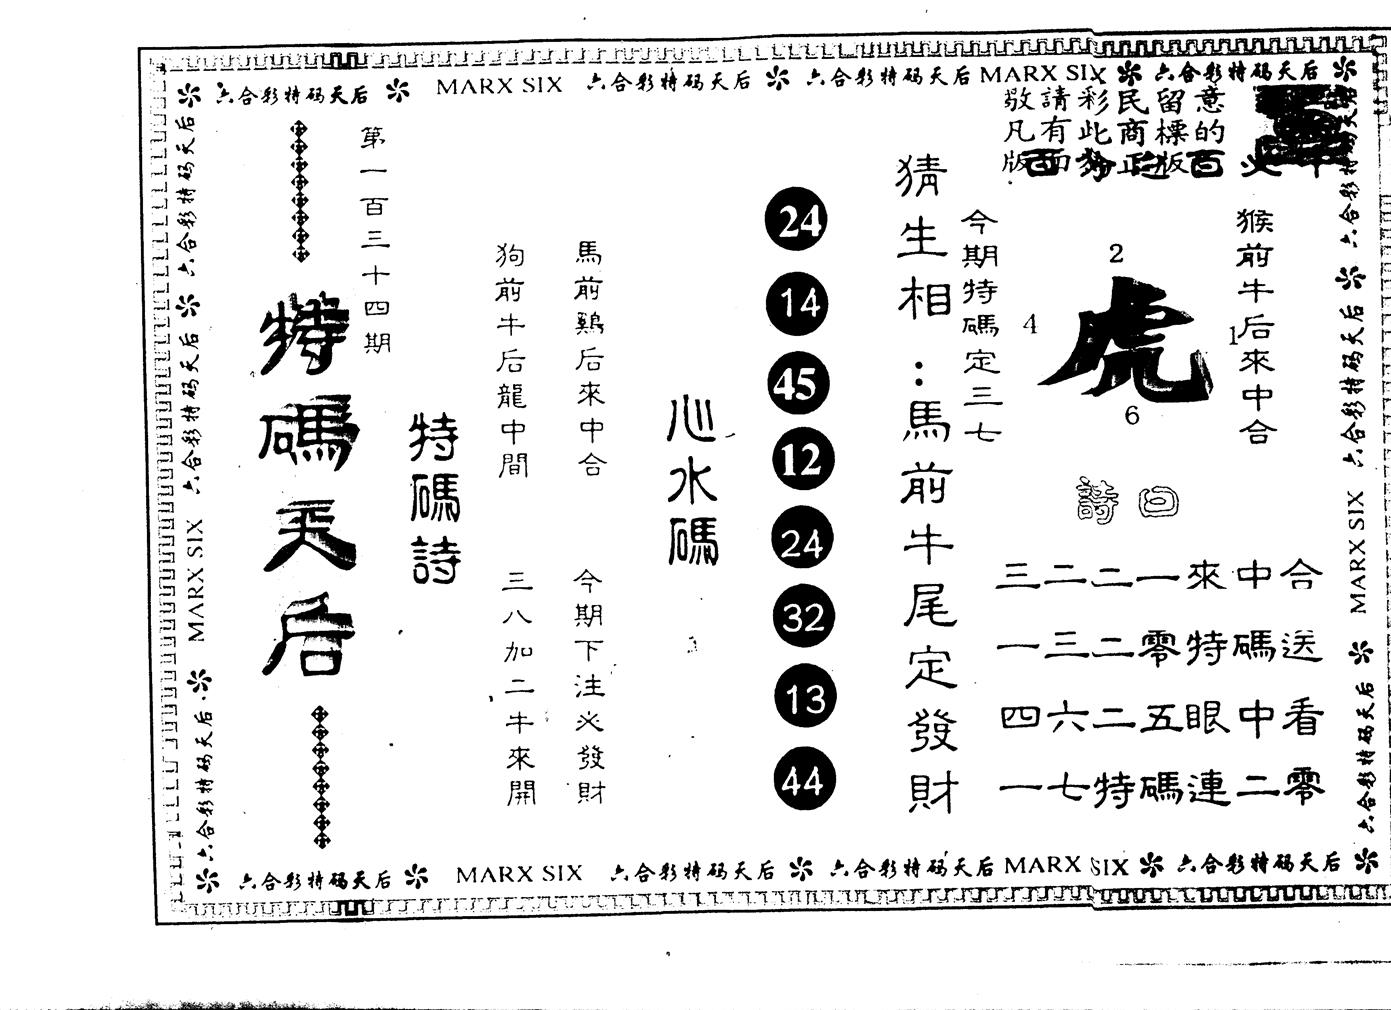 六合彩特码天后 MARX SIX 六合彩特码天后 六合彩特码天后 MARX SIX 六合彩特码天后
敬請彩民留意
凡有此商標的
版面為正版
百分之百必中
第一百三十四期
特碼天后
特碼詩
狗前牛后龍中間
三八加二牛來開
馬前鷄后來中合
今期下注必發財
心水碼
24
14
45
12
24
32
13
44
猜生相:馬前牛尾定發財
今期特碼定三七
2
4
虎
1
6
猴前牛后來中合
詩曰
三二二一來中合
一三二零特碼送
四六二五眼中看
一七特碼連二零
六合彩特码天后 六合彩特码天后 MARX SIX 六合彩特码天后
六合彩特码天后 六合彩特码天后 MARX SIX 六合彩特码天后
六合彩特码天后 MARX SIX 六合彩特码天后 六合彩特码天后 MARX SIX 六合彩特码天后